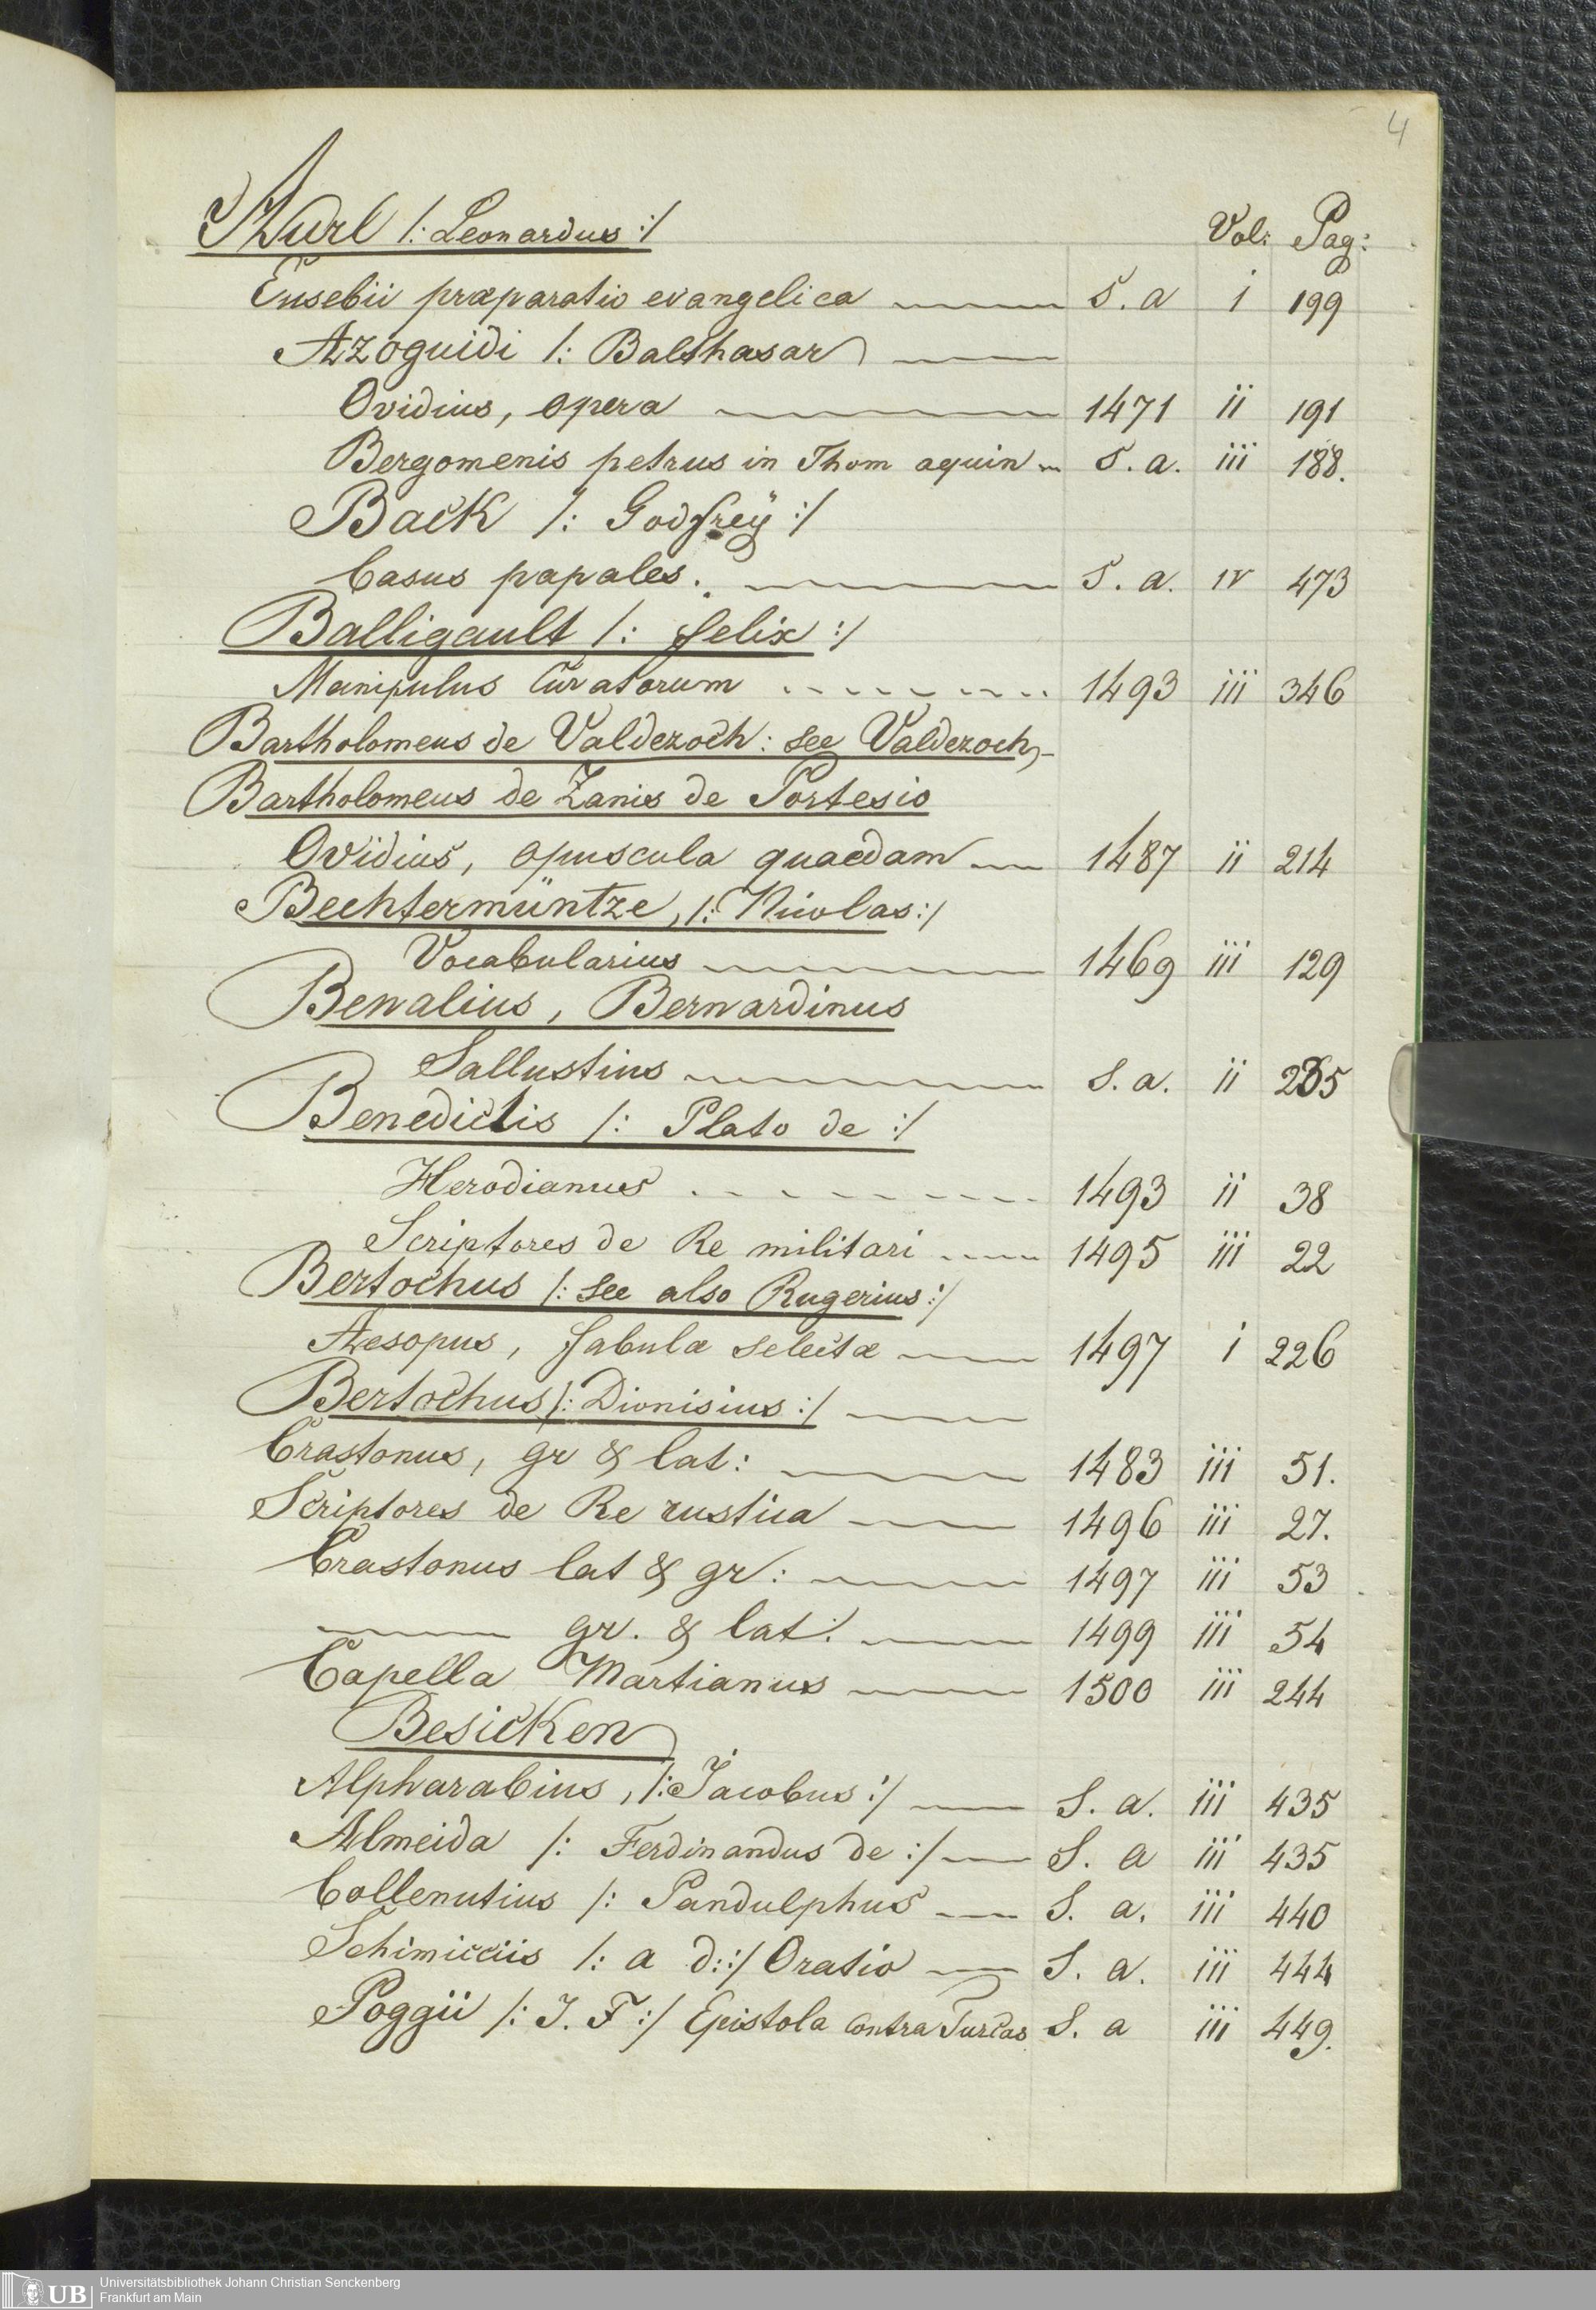 4
Aurl /: Leonardus :/ Vol: Pag:
Eusebii præparatio evangelica S. a i 199
Azoguidi /: Balthasar
Ovidius, opera 1471 ii 191
Bergomenis petrus in Thom aquin S. a. iii 188.
Back /: Godfreÿ :/
Casus papales. S. a. iv 473
Balligault /: felix :/
Manipulus Curatorum 1493 iii 346
Bartholomeus de Valdezoch: see Valdezoch
Bartholomeus de Zanis de Portesio
Ovidius, opuscula quaedam 1487 ii 214
Bechtermüntze, /: Nicolas :/
Vocabularius 1469 iii 129
Benalius, Bernardinus
Sallustius S. a. ii 235
Benedictis /: Plato de :/
Herodianus 1493 ii 38
Scriptores de Re militari 1495 iii 22
Bertochus /: see also Rugerius :/
Aesopus, fabulæ selectæ 1497 i 226
Bertochus /: Dionisius :/
Crastonus, gr & lat: 1483 iii 51.
Scriptores de Re rustica 1496 iii 27.
Crastonus lat & gr: 1497 iii 53
gr. & lat: 1499 iii 54
Capella Martianus 1500 iii 244
Besicken
Alpharabius, /: Jacobus :/ S. a. iii 435
Almeida /: Ferdinandus de :/ S. a iii 435
Collenutius /: Pandulphus S. a. iii 440
Schimicciis /: a d: :/ Oratio S. a. iii 444
Poggii /: J. F :/ Epistola contra Turcas S. a iii 449.
UB Universitätsbibliothek Johann Christian Senckenberg
Frankfurt am Main